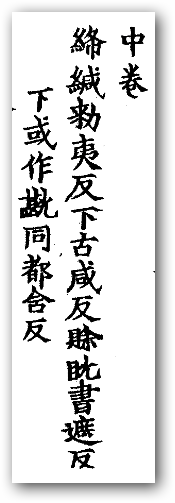 中卷
絺緘勑夷反下古咸反賖眈書遮反
下或作同都含反